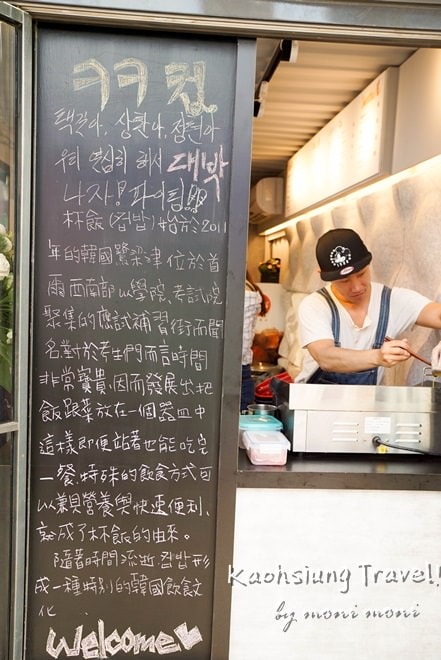 ㅋㅋ컵
우리 열심히 해서 대박
나자! 파이팅!!
杯飯(컵밥)始於2011
年的韓國鷺梁津位於首
爾西南部以學院、考試院
聚集的應試補習街而聞
名對於考生們而言時間
非常寶貴因而發展出把
飯跟菜放在一個器皿中
這樣即便站著也能吃完
一餐.特殊的飲食方式可
以兼具營養與快速便利、
就成了杯飯的由來。
隨著時間流逝컵밥形
成一種特別的韓國飲食文
化
Welcome
Kaohsiung Travel!
by moni moni